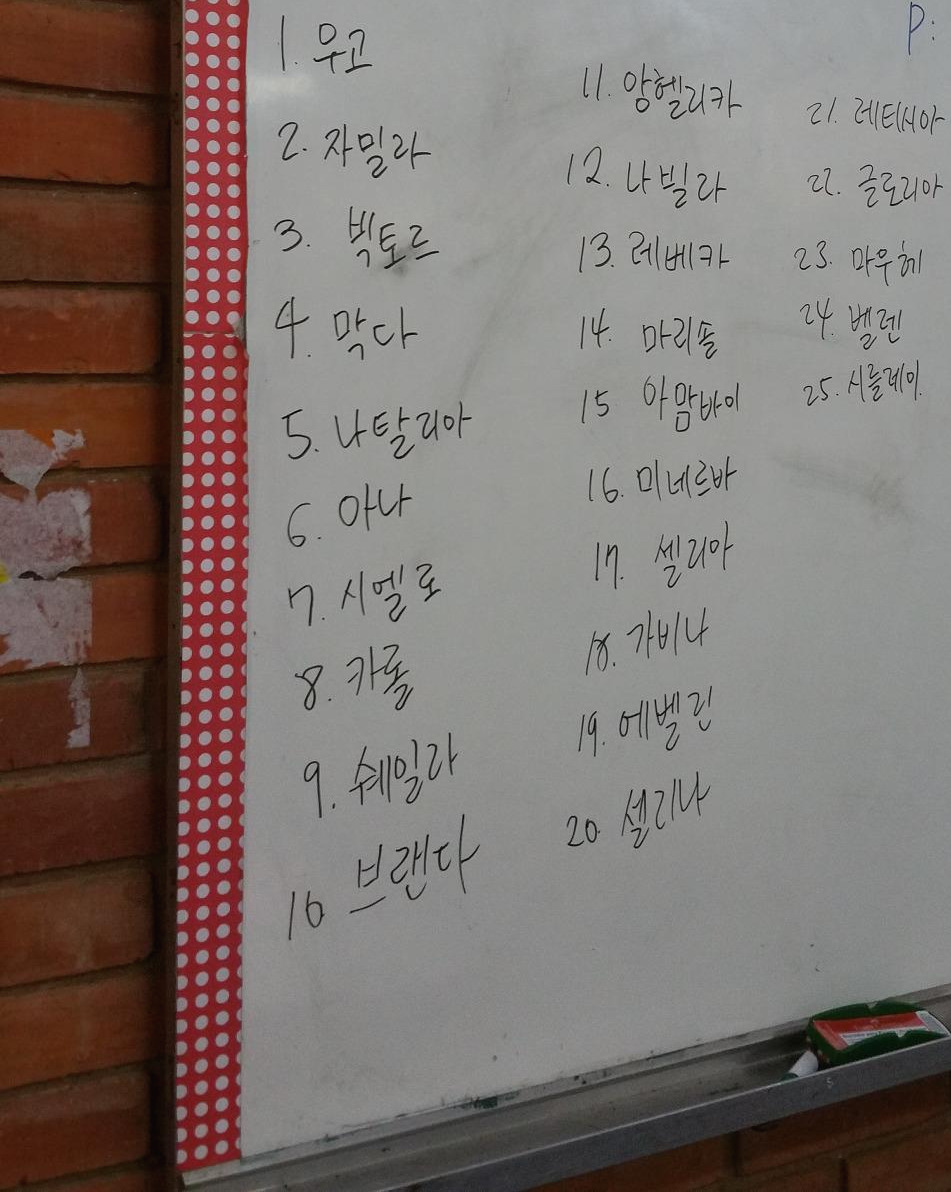 1. 우고
2. 자밀라
3. 빅토르
4. 막다
5. 나탈리아
6. 아나
7. 시엘로
8. 카롤
9. 쉐일라
10 브랜다
11. 앙헬리카
12. 나빌라
13. 레베카
14. 마리솔
15 아맘바이
16. 미네르바
17. 셀리아
18. 가비나
19. 에벨린
20. 셀리나
P:
21. 레티시아
22. 글로리아
23. 마우헤
24. 벨렌
25. 시들레이.